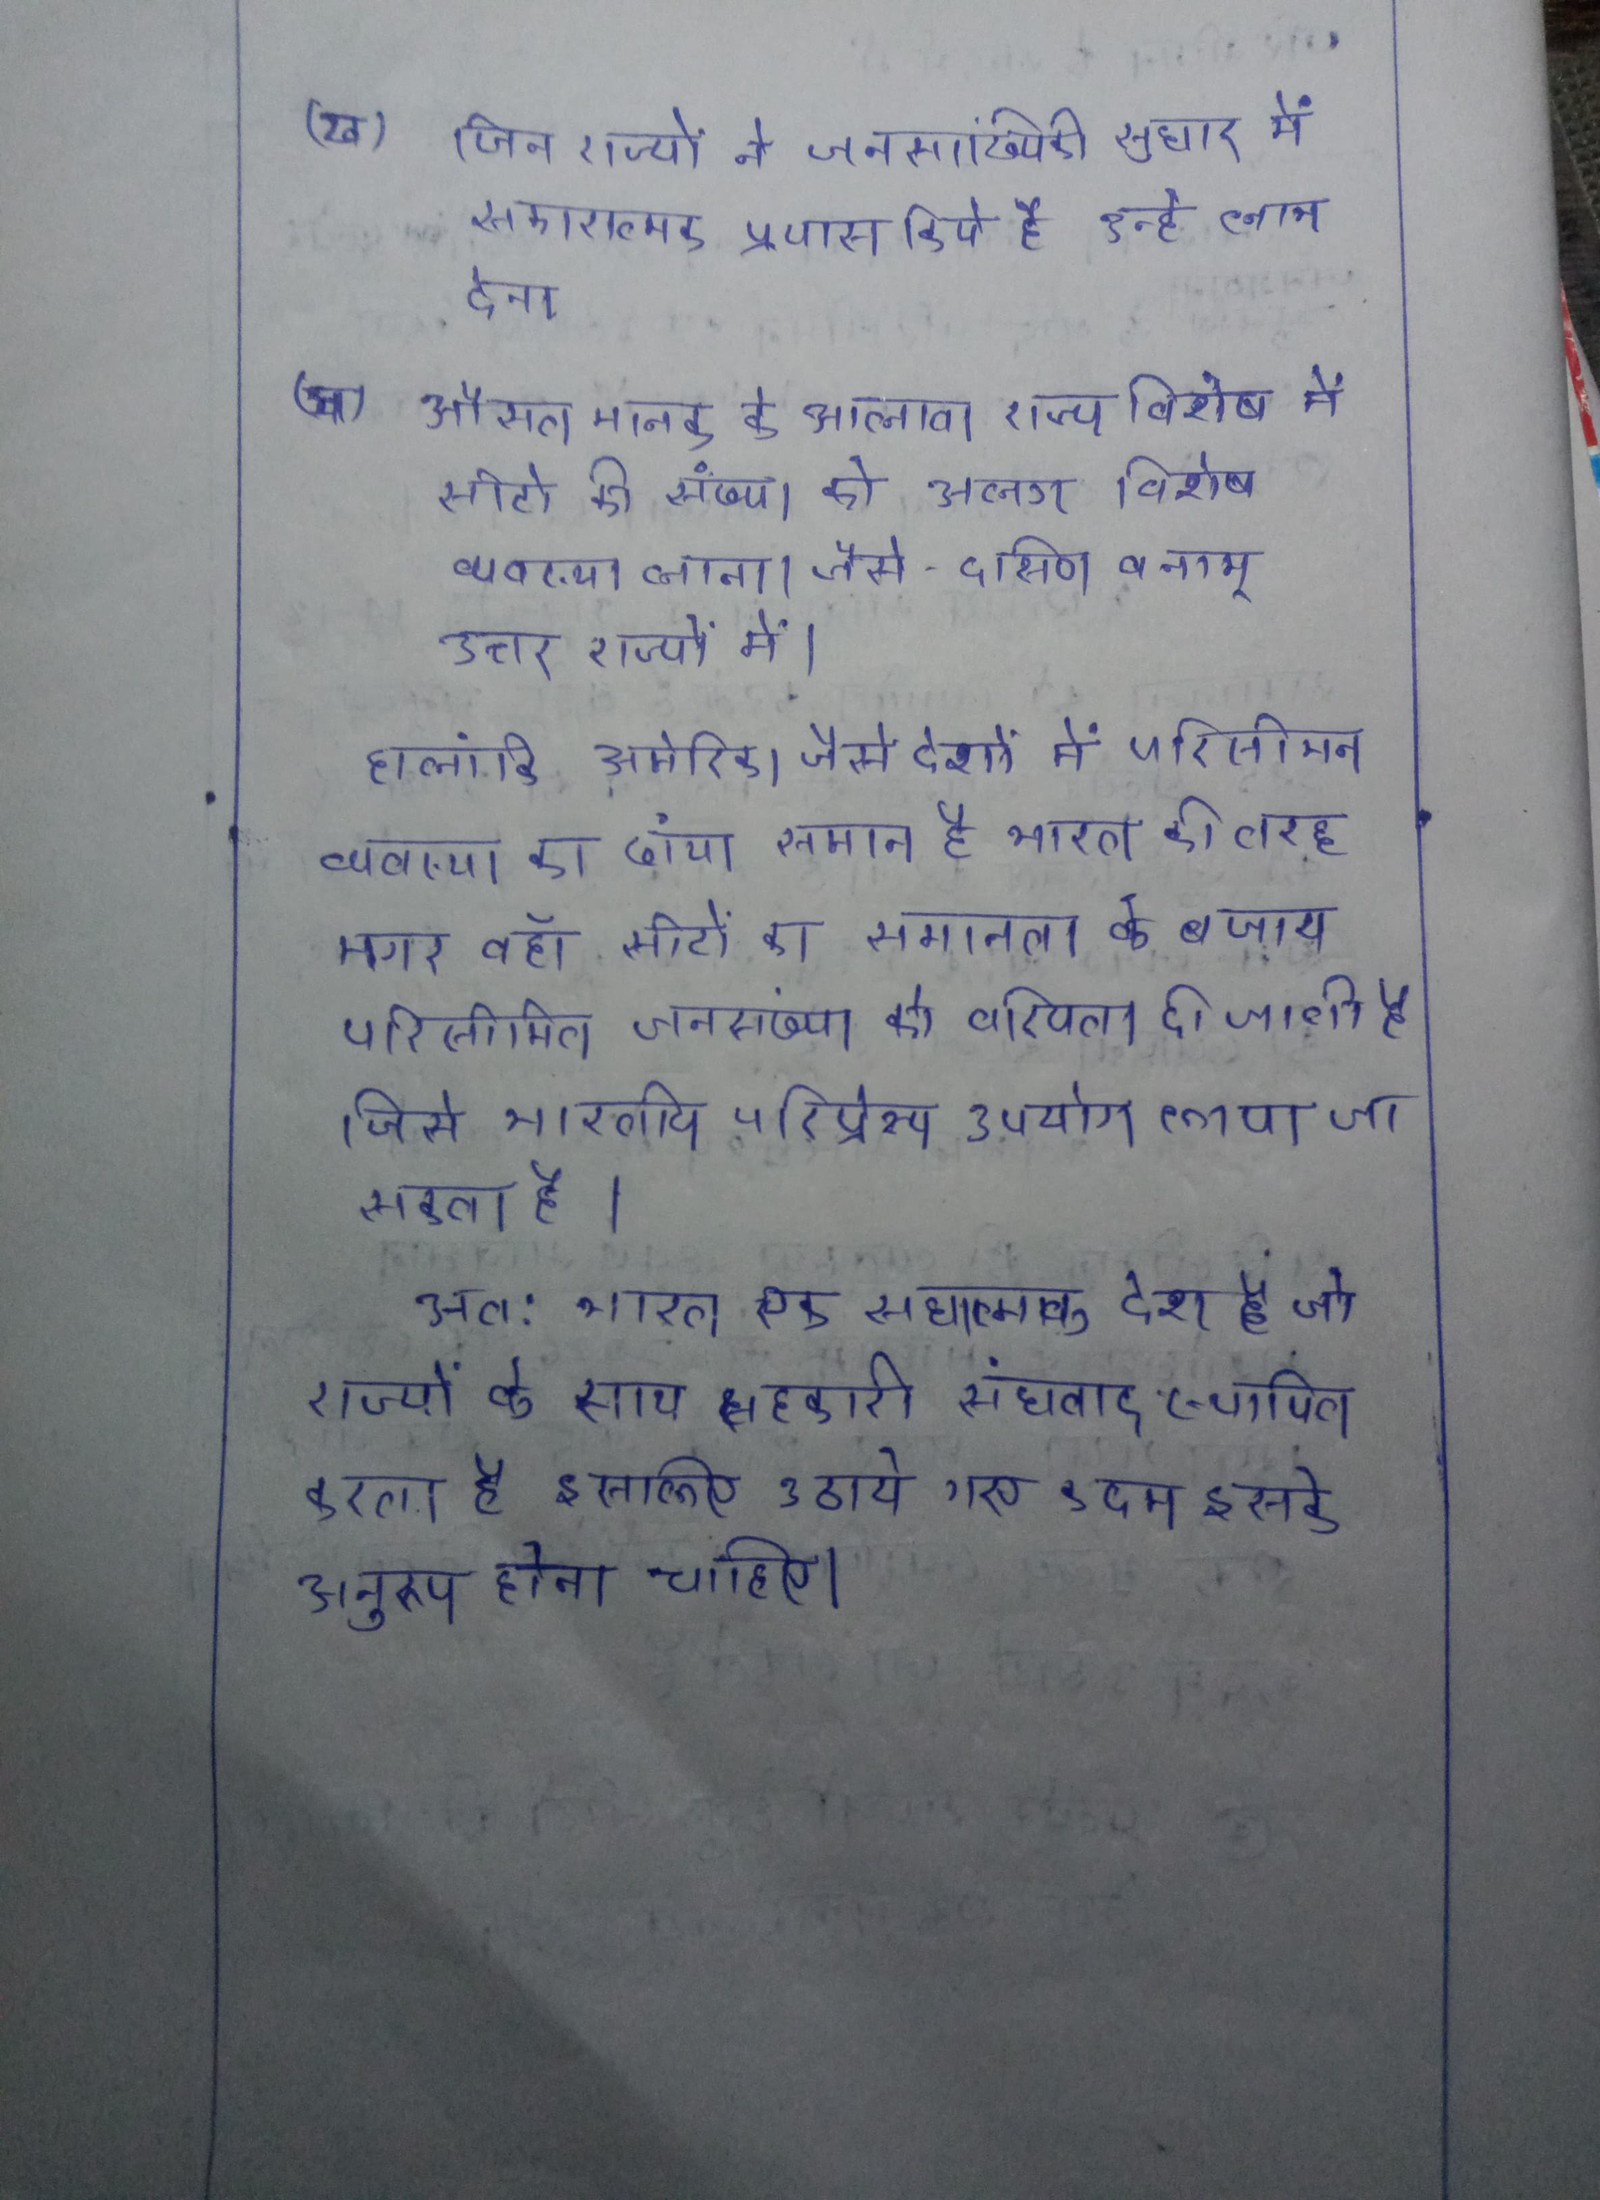 (ख) जिन राज्यों ने जनसांख्यिकी सुधार में
सकारात्मक प्रयास किये है उन्हे लाभ
देना
औसत मानक के आलावा राज्य विशेष में
सीटो की संख्या को अलग विशेष
व्यवस्था लाना। जैसे - दक्षिण बनाम
उत्तर राज्यों में।
हालांकि अमेरिका जैसे देशों में परिसीमन
व्यवस्था का ढांचा समान है भारत की तरह
मगर वहाँ सीटों का समानता के बजाय
परिसीमित जनसंख्या को वरियता दी जाती है
जिसे भारतीय परिप्रेक्ष्य उपयोग लाया जा
सकता है।
अत: भारत एक संघात्मक देश है जो
राज्यों के साथ सहकारी संघवाद स्थापित
करता है इसलिए उठाये गए कदम इसके
अनुरूप होना चाहिए।